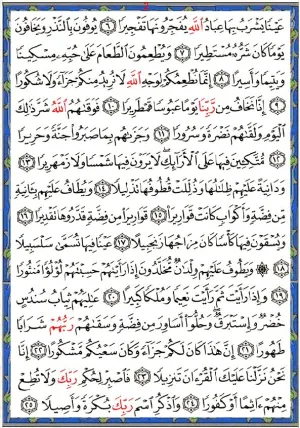 عَيْنًا يَشْرَبُ بِهَا عِبَادُ اللَّهِ يُفَجِّرُونَهَا تَفْجِيرًا ٦ يُوفُونَ بِالنَّذْرِ وَيَخَافُونَ
يَوْمًا كَانَ شَرُّهُ مُسْتَطِيرًا ٧ وَيُطْعِمُونَ الطَّعَامَ عَلَى حُبِّهِ مِسْكِينًا
وَيَتِيمًا وَأَسِيرًا ٨ إِنَّمَا نُطْعِمُكُمْ لِوَجْهِ اللَّهِ لَا نُرِيدُ مِنْكُمْ جَزَاءً وَلَا شُكُورًا
٩ إِنَّا نَخَافُ مِنْ رَبِّنَا يَوْمًا عَبُوسًا قَمْطَرِيرًا ١٠ فَوَقَاهُمُ اللَّهُ شَرَّ ذَلِكَ
الْيَوْمِ وَلَقَّاهُمْ نَضْرَةً وَسُرُورًا ١١ وَجَزَاهُمْ بِمَا صَبَرُوا جَنَّةً وَحَرِيرًا
١٢ مُتَّكِئِينَ فِيهَا عَلَى الْأَرَائِكِ لَا يَرَوْنَ فِيهَا شَمْسًا وَلَا زَمْهَرِيرًا ١٣
وَدَانِيَةً عَلَيْهِمْ ظِلَالُهَا وَذُلِّلَتْ قُطُوفُهَا تَذْلِيلًا ١٤ وَيُطَافُ عَلَيْهِمْ بِآنِيَةٍ
مِنْ فِضَّةٍ وَأَكْوَابٍ كَانَتْ قَوَارِيرَا ١٥ قَوَارِيرَا مِنْ فِضَّةٍ قَدَّرُوهَا تَقْدِيرًا ١٦
وَيُسْقَوْنَ فِيهَا كَأْسًا كَانَ مِزَاجُهَا زَنْجَبِيلًا ١٧ عَيْنًا فِيهَا تُسَمَّى سَلْسَبِيلًا
١٨ ۞ وَيَطُوفُ عَلَيْهِمْ وِلْدَانٌ مُخَلَّدُونَ إِذَا رَأَيْتَهُمْ حَسِبْتَهُمْ لُؤْلُؤًا مَنْثُورًا
١٩ وَإِذَا رَأَيْتَ ثَمَّ رَأَيْتَ نَعِيمًا وَمُلْكًا كَبِيرًا ٢٠ عَالِيَهُمْ ثِيَابُ سُنْدُسٍ
خُضْرٌ وَإِسْتَبْرَقٌ وَحُلُّوا أَسَاوِرَ مِنْ فِضَّةٍ وَسَقَاهُمْ رَبُّهُمْ شَرَابًا
طَهُورًا ٢١ إِنَّ هَذَا كَانَ لَكُمْ جَزَاءً وَكَانَ سَعْيُكُمْ مَشْكُورًا ٢٢ إِنَّا
نَحْنُ نَزَّلْنَا عَلَيْكَ الْقُرْآنَ تَنْزِيلًا ٢٣ فَاصْبِرْ لِحُكْمِ رَبِّكَ وَلَا تُطِعْ
مِنْهُمْ آثِمًا أَوْ كَفُورًا ٢٤ وَاذْكُرِ اسْمَ رَبِّكَ بُكْرَةً وَأَصِيلًا ٢٥